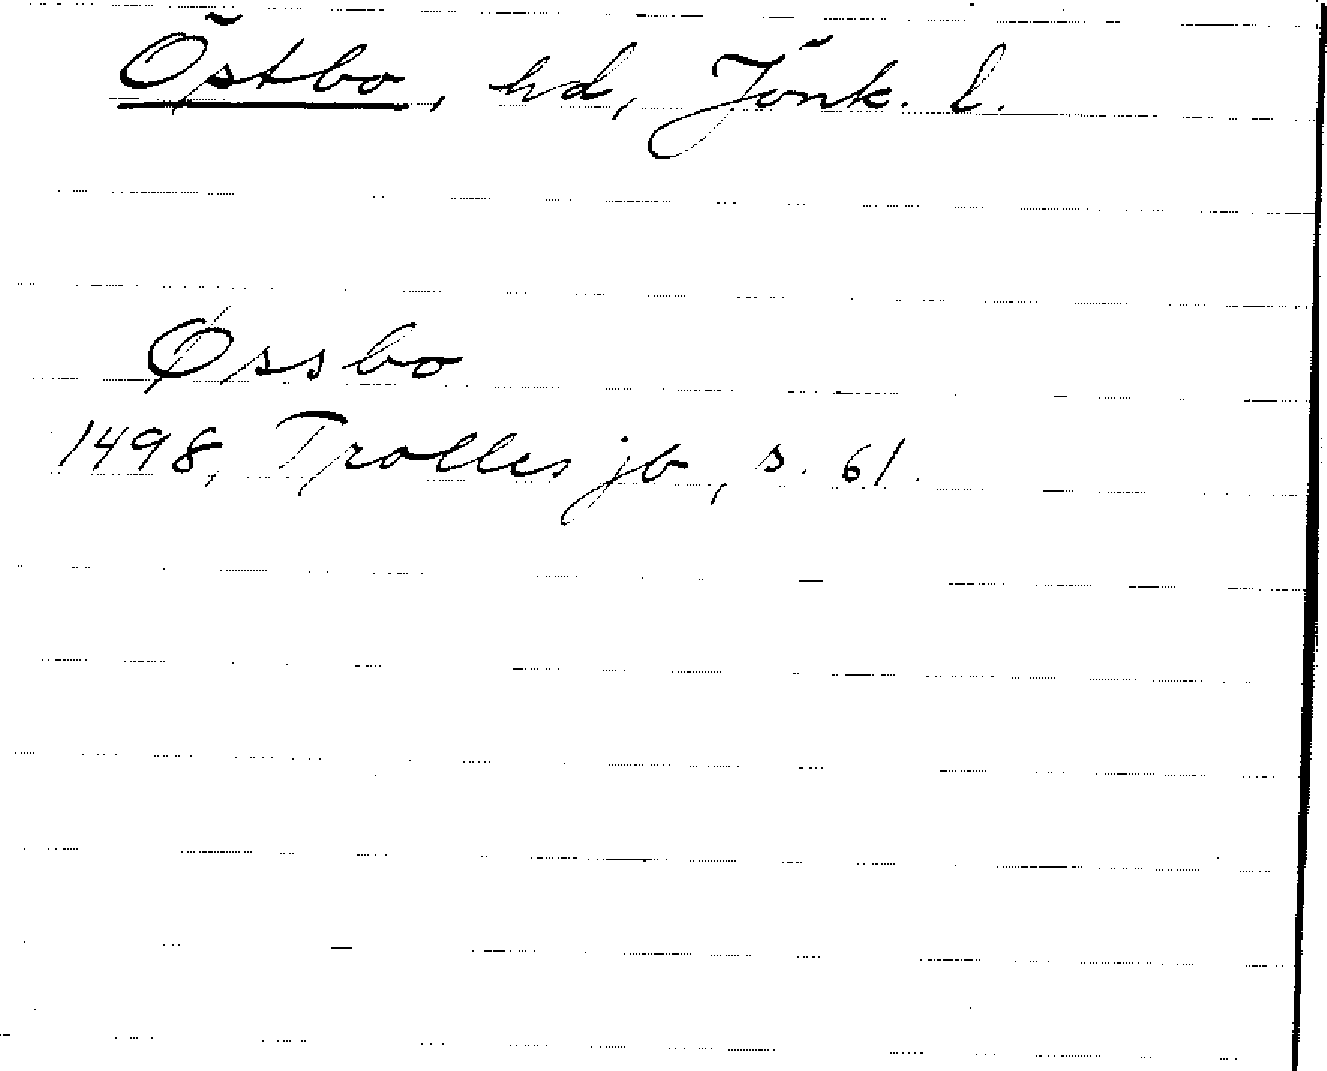 Östbo, hd, Jönk. l.
Øssbo
1498, Trolles jb, s. 61.